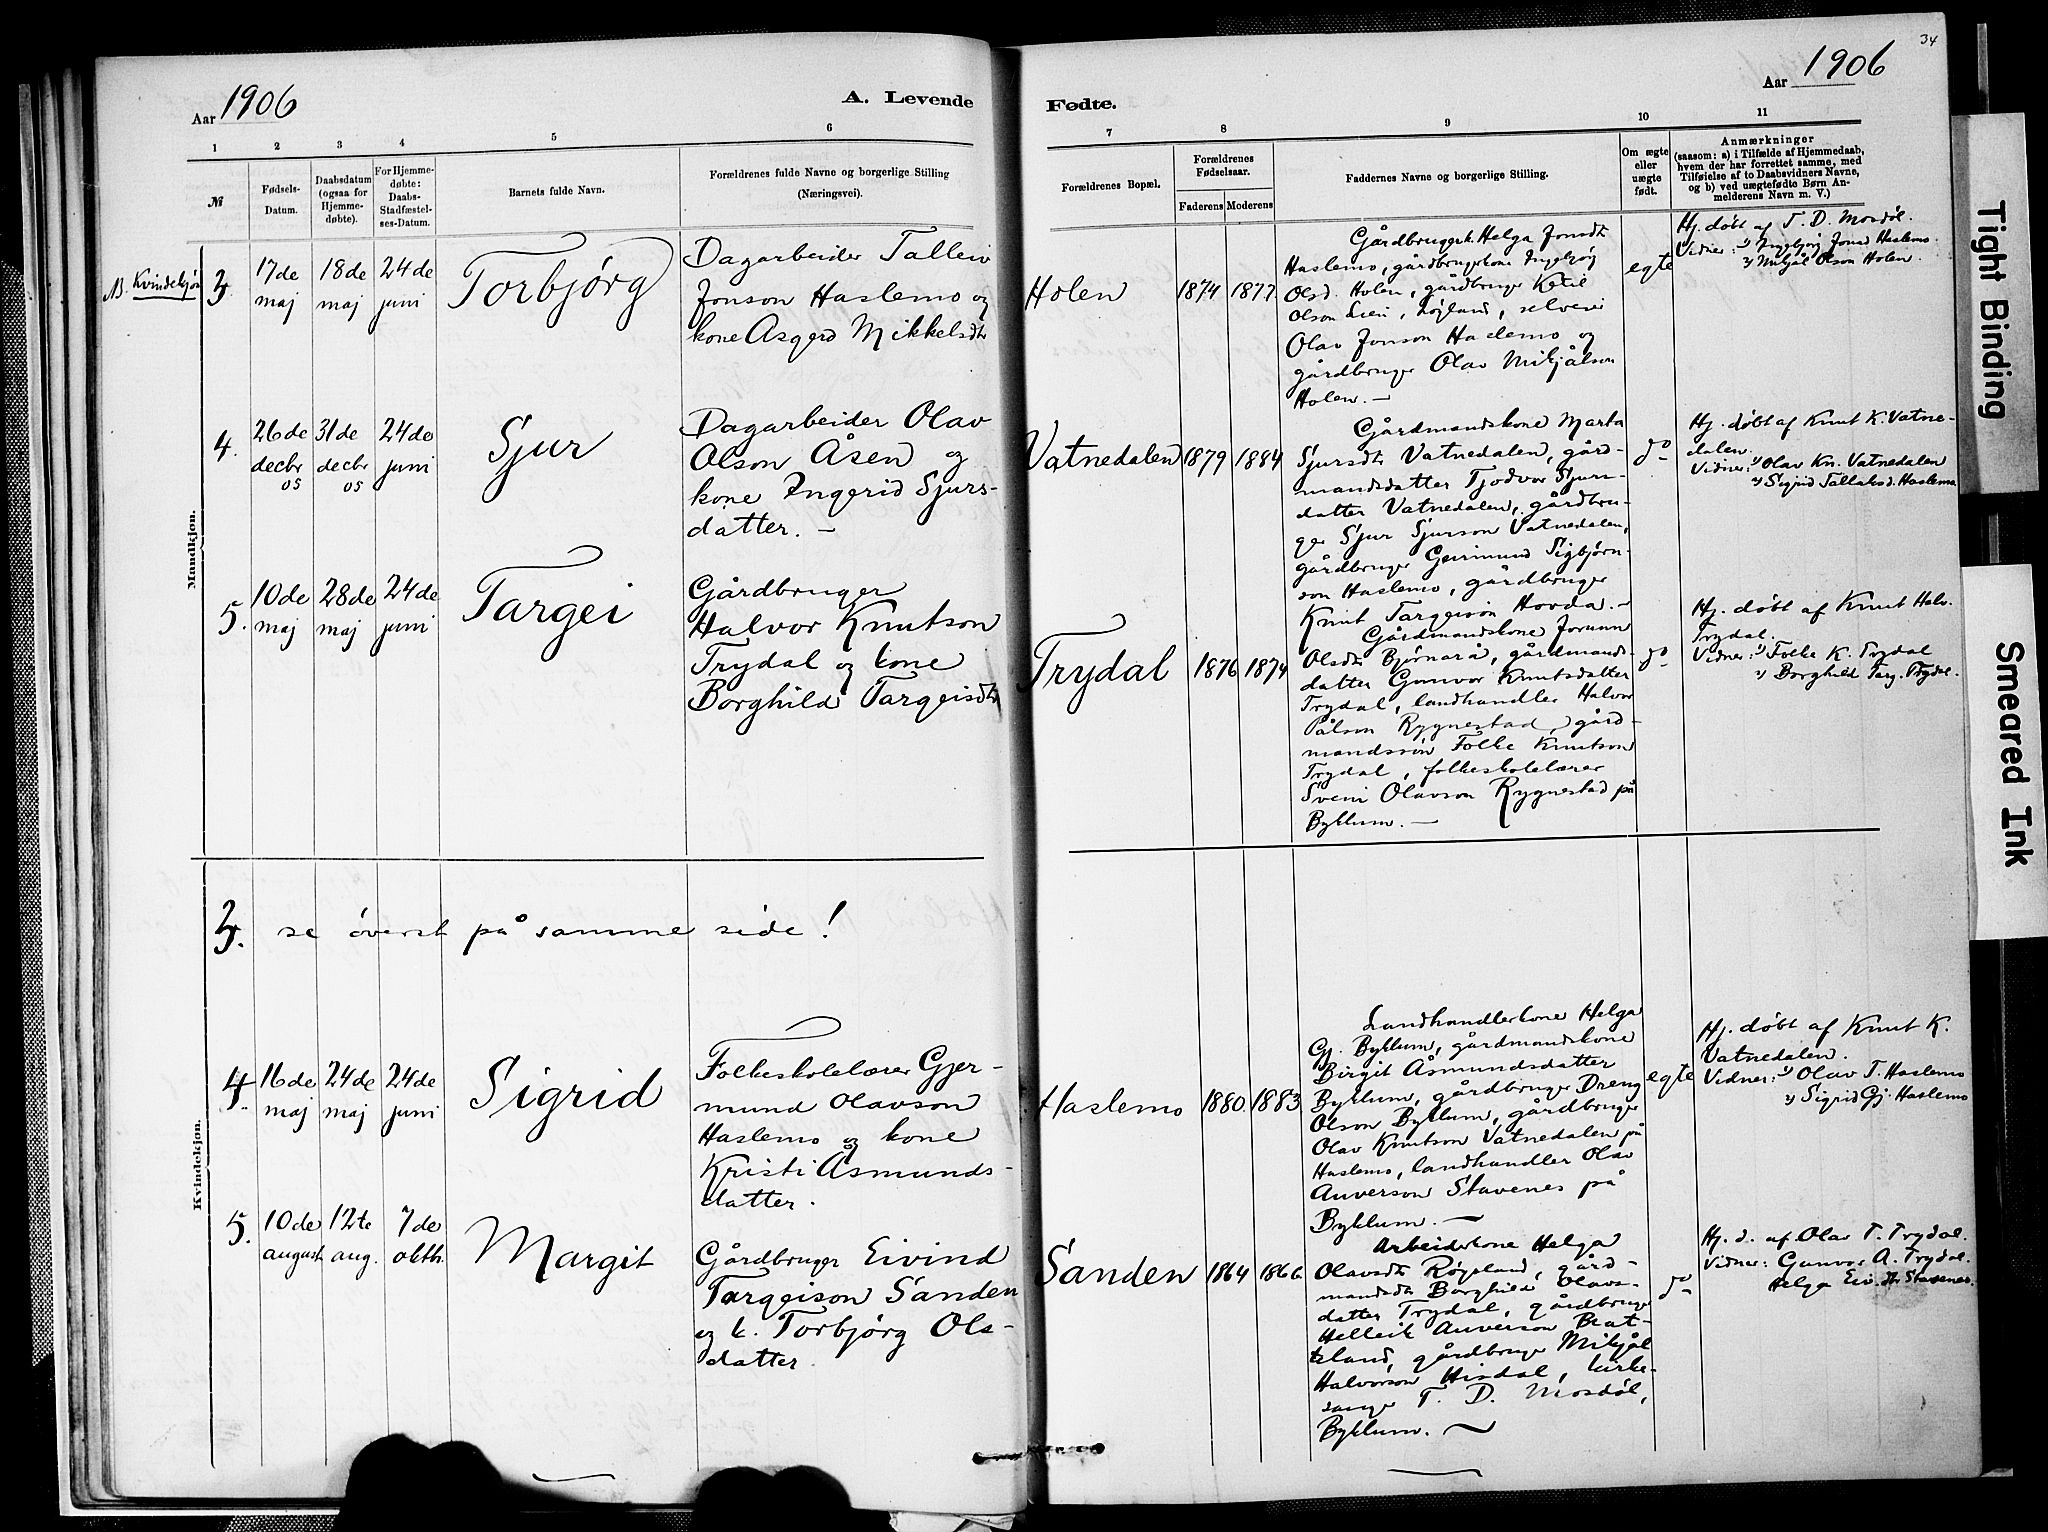 34
Aar 1906
A. Levende
Fødte.
Aar 1906
1
2
3
4
5
6
7
8
9
10
11
№
Fødsels-
Datum.
Daabsdatum
(ogsaa for
Hjemme-
døbte).
For Hjemme-
døbte:
Daabs-
Stadfæstel-
ses-Datum.
Barnets fulde Navn.
Forældrenes fulde Navne og borgerlige Stilling
(Næringsvei).
Forældrenes Bopæl.
Forældrenes
Fødselsaar.
Faderens
Moderens
Faddernes Navne og borgerlige Stilling.
Om ægte
eller
uægte
født.
Anmærkninger
(saasom: a) i Tilfælde af Hjemmedaab,
hvem der har forrettet samme, med
Tilføielse af to Daabsvidners Navne,
og b) ved uægtefødte Børn An-
melderens Navn m. V.)
Mandkjøn.
NB. Kvindekjøn
3
17de
maj
18de
maj
24de
juni
Torbjørg
Dagarbeider Talleiv
Jonson Haslemo og
kone Asgerd Mikkelsdtr
Holen
1874
1877
Gårdbrugerk. Helga Jonsdtr
Haslemo, gårdbrugerkone Ingebjørg
Olsd. Holen, gårdbruger Ketil
Olson Lien, selveier
Olav Jonson Haslemo og
gårdbruger Olav Mikjålson
Holen. –
egte
Hj. døbt af T. D. Mosdøl.
Vidner: 1) Ingebjørg Jonsd Haslemo
2) Mikjål Olson Holen.
4.
26de
decbr
05
31de
decbr
05
24de
juni
Sjur
Dagarbeider Olav
Olson Åsen og
kone Ingerid Sjurs-
datter. –
Vatnedalen
1879
1884
Gårdmandskone Marta
Sjursdtr Vatnedalen, gård-
mandsdatter Tjodvor Sjurs-
datter Vatnedalen, gårdbru-
ger Sjur Sjurson Vatnedalen,
gårdbruger Geirmund Sigbjørn-
son Haslemo, gårdbruger
Knut Targeison Hovda. –
do
Hj. døbt af Knut K. Vatne-
dalen.
Vidner: 1) Olav Kn. Vatnedalen
2) Sigrid Tallaksd. Haslemo
5.
10de
maj
28de
maj
24de
juni
Targei
Gårdbruger
Halvor Knutson
Trydal og kone
Borghild Targeisdtr
Trydal
1876
1874
Gårdmandskone Jorunn
Olsdtr Bjørnarå, gårdmands-
datter Gunvor Knutsdatter
Trydal, landhandler Halvor
Pålson Rygnestad, gård-
mandssøn Folke Knutson
Trydal, folkeskolelærer
Svein Olavson Rygnestad på
Byklum. –
do
Hj. døbt af Knut Halv.
Trydal.
Vidner: 1) Folke K. Trydal
2) Borghild Targ. Trydal.
Kvindekjøn.
3.
se øverst på samme side!
4.
16de
maj
24de
maj
24de
juni
Sigrid
Folkeskolelærer Gjer-
mund Olavson
Haslemo og kone
Kristi Åsmunds-
datter.
Haslemo
1880.
1883
Landhandlerkone Helga
Gj. Byklum, gårdmandskone
Birgit Åsmundsdatter
Byklum, gårdbruger Dreng
Olson Byklum, gårdbruger
Olav Knutson Vatnedalen på
Haslemo, landhandler Olav
Anverson Stavenes på
Byklum. –
egte
Hj. døbt af Knut K.
Vatnedalen.
Vidner: 1) Olav T. Haslemo
2) Sigrid Gj. Haslemo
5.
10de
august
12te
aug.
7de
oktb.
Margit
Gårdbruger Eivind
Targeison Sanden
og k. Torbjørg Ols-
datter.
Sanden
1864
1866
Arbeiderkone Helga
Olavsdtr Røysland, gård-
mandsdtr Borghild Olavs-
datter Trydal, gårdbruger
Helleik Anverson Brat-
teland, gårdbruger Mikjål
Halvorson Hisdal, kirke-
sanger T. D. Mosdøl,
Byklum. –
do
Hj. d. af Olav T. Trydal.
Vidner: Gunvor A. Trydal.
Helga Eiv.dtr Stavenes.
Tight Binding
Smeared Ink